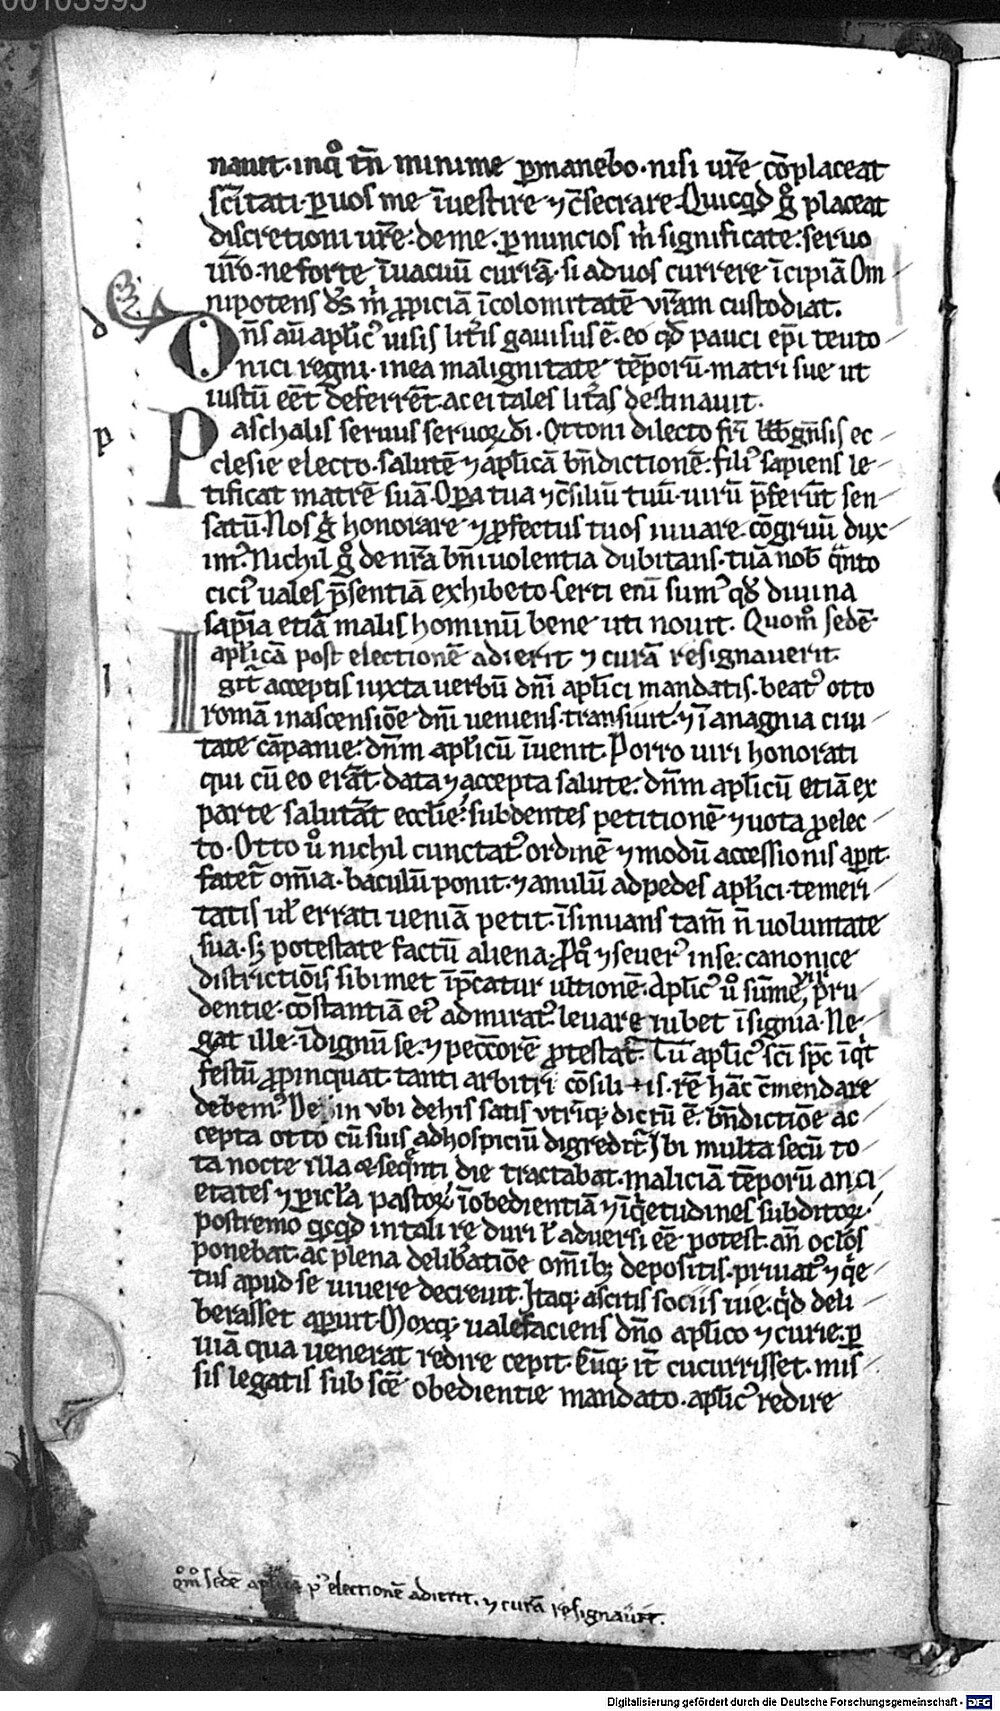 00103995
nauit. inq° tn̄ minime p̱manebo. nisi ur̄e cō̄placeat
sc̄itati. p̱ uos me īuestire ⁊ c̄secrare. Quicqd g° placeat
discretioni ur̄e. de me. p̱ nuncios m̍ significate. seruo
ur̄o. ne forte īuacuū currā. si ad uos currere īcipiā. Om
nipotens d̄s m̍ ꝓpiciā īcolomitatē vr̄am custodiat.
d
Dn̄s aū apl̄ic᾽ uisis litt̄is gauisus ē. eo qd̄ pauci ep̄i teuto
nici regni. in ea malignitate tēporū. matri sue ut
iustū eēt deferrēt. ac ei tales litt̄as destinauit.
p
Paschalis seruus seruoꝝ di. Ottoni dilecto fr̄i bb̄gn̄sis ec
clesie electo. salutē ⁊ apl̄icā bn̄dictionē. fili᾽ sapiens le
tificat matrē suā. Op̱a tua ⁊ c̄siliū tuū. uirū p̄ferūt sen
satū. Nos g̍ honorare ⁊ ꝓfectus tuos iuuare. cōgruū dux
im᾽. Nichil g° de nr̄a bn̄iuolentia dubitans. tuā nob̄ qͣnto
cici᾽ uales p̄sentiā exhibeto. Certi enī sum᾽ qd̄ diuina
sap̄ia etiā malis hominū bene uti nouit. Quom° sedē
apl̄icā post electionē adierit ⁊ curā resignauerit.
I
Igit̄ acceptis iuxta uerbū dn̄i apl̄ici mandatis. beat᾽ otto
romā in ascensiōe dn̄i ueniens. transiuit. ⁊ ī anagnia ciui
tate cāpanie. dn̄m apl̄icū īuenit. Porro uiri honorati
qui cū eo erāt. data ⁊ accepta salute. dn̄m apl̄icū etiā ex
parte salutāt eccl̄ie. subdentes petitionē ⁊ uota ꝓ elec
to. Otto u° nichil cunctat᾽ ordinē ⁊ modū accessionis ap̱it.
fatet̄ om̄ia. baculū ponit. ⁊ anulū ad pedes apl̄ici. temeri
tatis ul̄ errati ueniā petit. īsinuans tam̄ n̄ uoluntate
sua. sꝫ potestate factū aliena. ꝓq° ⁊ seuer᾽ in se. canonice
districtiōis sibimet īp̄catur ultionē. Apl̄ic᾽ u° sum̄e uir᾽ pru
dentie. cōstantiā ei᾽ admirat᾽. leuare iubet īsignia. Ne
gat ille. īdignū se. ⁊ pecc̄orē ꝓtestat̄. Cū apl̄ic᾽ sc̄i sp̄c īqt̍
festū ꝓpinquat. tanti arbitri cōsiliis. rē hāc c̄mendare
debem᾽. Dein ubi de his satis utriq̍ꝫ dictū ē. bn̄dictiōe ac
cepta otto cū suis ad hospiciū digredit̄. Ibi multa secū to
ta nocte illa ⁊ seqn̍ti die tractabat. maliciā tēporū anxi
etates ⁊ pericl̄a pastoꝝ. īobedientiā ⁊ īq̍etudines subditoꝝ.
postremo qͥcqd in tali re duri ł aduersi eē potest. an̄ ocl̄os
ponebat. ac plena delib̄atiōe om̄ibꝫ depositis. priuat᾽ ⁊ q̍e
tus apud se uiuere decreuit. Itaqꝫ ascitis sociis uie. qͥd deli
berasset ap̱uit. Moxqꝫ ualefaciens dn̄o apl̄ico ⁊ curie. p̱
uiā qua uenerat redire cepit. Cūqꝫ it̄ cucurrisset. mis
sis legatis sub sc̄e obedientie mandato. apl̄ic᾽ redire
qm° sedē apl̄icā p᾽ electionē adierit. ⁊ curā resignau̍it.
Digitalisierung gefördert durch die Deutsche Forschungsgemeinschaft - DFG